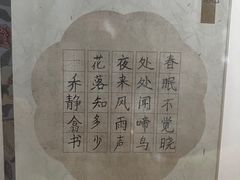 春眠不觉晓
处处闻啼鸟
夜来风雨声
花落知多少
乔静畲书